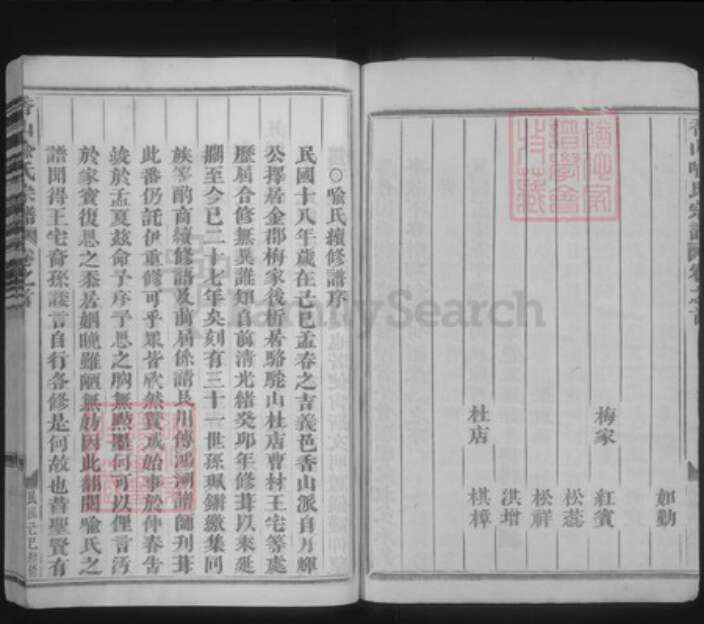 ○喻氏續修譜序
民國十八年歲在己巳孟春之吉義邑香山派自月輝
公擇居金郡梅家後析居駱駝山杜店曹村王宅等處
歷屆合修無異誰知自前清光緒癸卯年修葺以來延
擱至今已二十七年矣刻有三十一世孫珮鏘繳集同
族等酌商續修譜及前屆係請長川傅鴻河譜師刊葺
此番仍託伊重修可乎眾皆欣然寔或始事於仲春告
竣於孟夏茲命予序予思之胸無點墨何可以俚言污
於家寶復思之忝居姻晚雖陋無妨因此翻閱喻氏之
譜聞得王宅裔孫議言自行各修是何故也昔聖賢有
香山喻氏宗譜
卷之首
民國己巳
如勤
梅家
紅賓
松蕊
松祥
洪增
杜店
棋樟
香山喻氏宗譜
FamilySearch